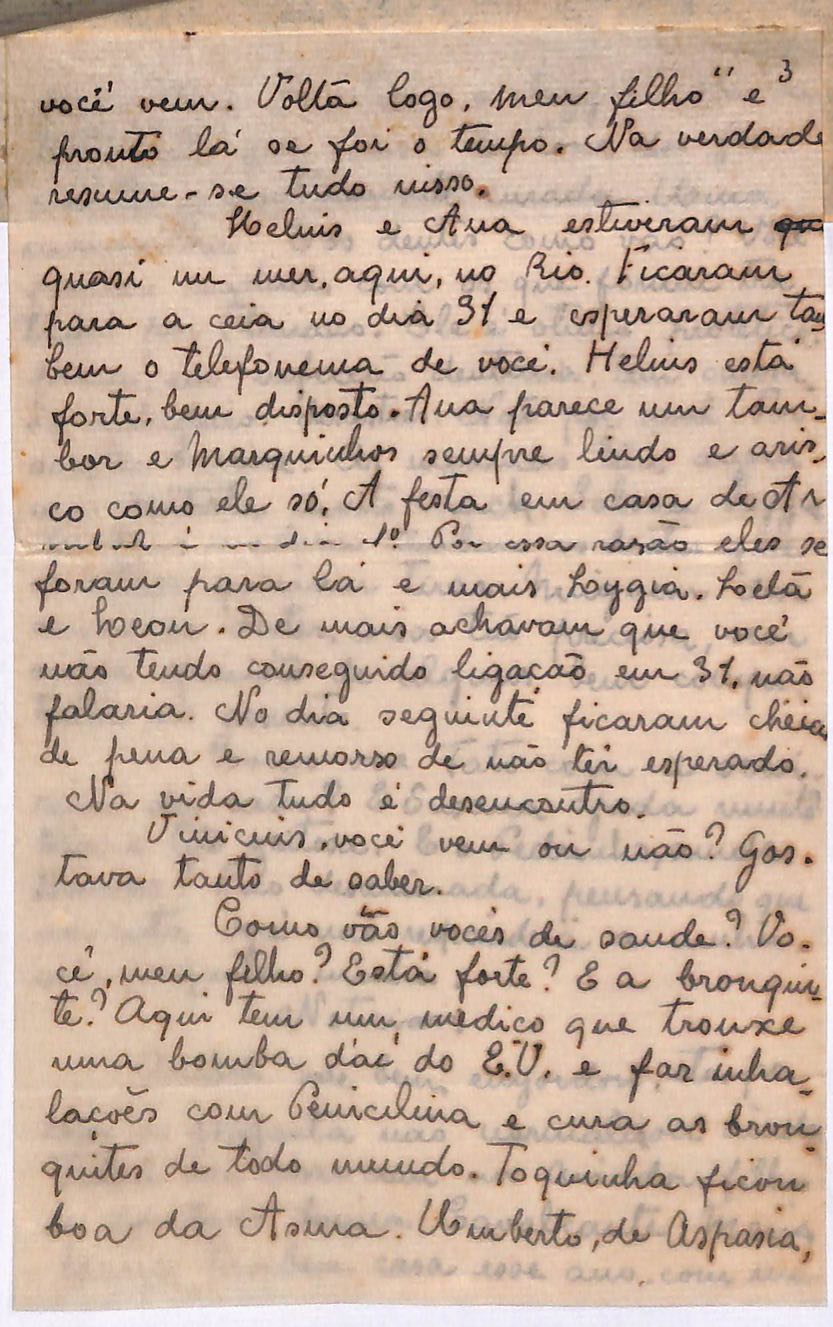 3
você vem. Volta logo, meu filho" e
pronto lá se foi o tempo. Na verdade
resume-se tudo nisso.
Helius e Ana estiveram
quasi um mez, aqui, no Rio. Ficaram
para a ceia no dia 31 e esperaram tam
bem o telefonema de você. Helius está
forte, bem disposto. Ana parece um tam-
bor e Marquinhos sempre lindo e aris-
co como ele só. A festa em casa de Ar
dia 1º Por essa razão eles se
foram para lá e mais Lygia, Letá
e Leon. De mais achavam que você
não tendo conseguido ligação em 31, não
falaria. No dia seguinte ficaram cheios
de pena e remorso de não ter esperado.
Na vida tudo é desencontro.
Vinicius, você vem ou não? Gos-
tava tanto de saber.
Como vão vocês de saude? Vo-
cê, meu filho? Está forte? E a bronqui-
te? Aqui tem um medico que trouxe
uma bomba d'aí do E.U. e faz inha-
lacões com Penicilina e cura as bron-
quites de todo mundo. Toquinha ficou
boa da Asma. Umberto, de Aspasia,